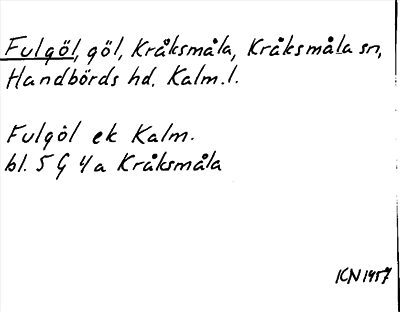 Fulgöl, göl, Kråksmåla, Kråksmåla sn,
Handbörds hd. Kalm.l.
Fulgöl ek Kalm.
bl. 5 G 4a Kråksmåla
KN 1957